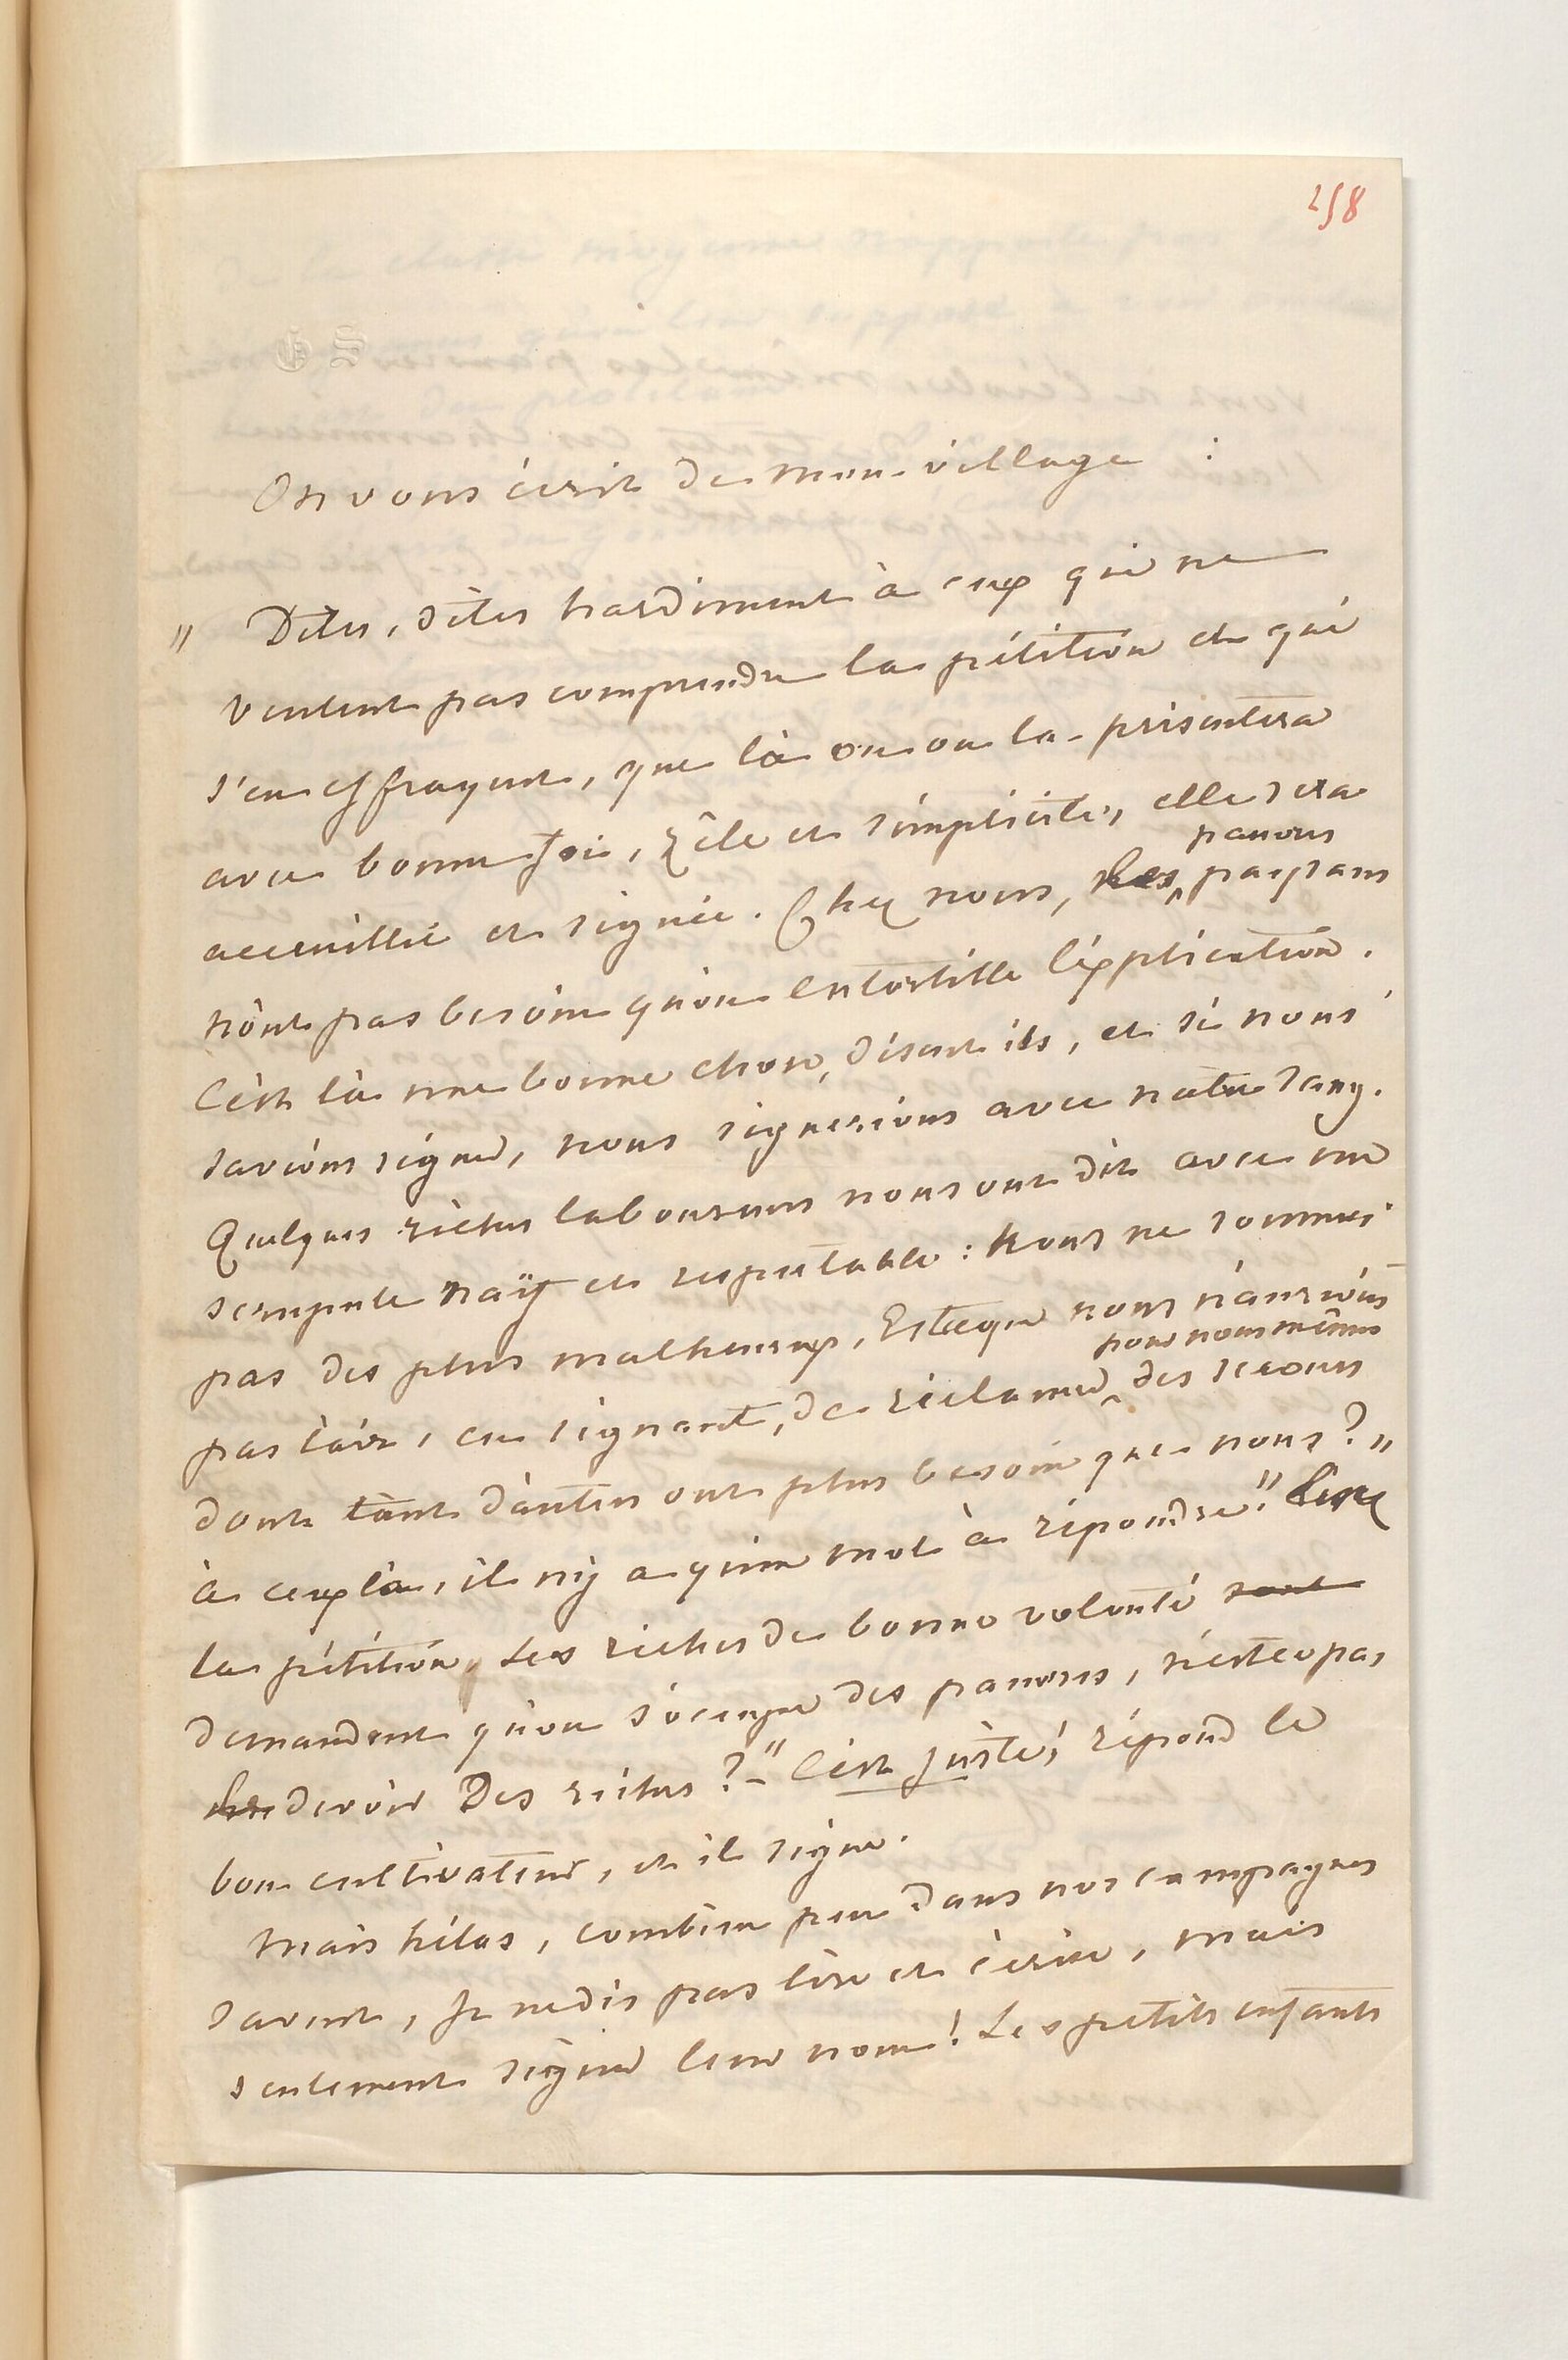 258
G S
On vous écrit de mon village :
" Dites, dites hardiment à ceux qui ne
veulent pas comprendre la pétition et qui
s'en effrayent, que là où on la présentera
avec bonne foi, zèle et simplicité, elle sera
pauvres
accueillie et signée. Chez nous, les paysans
n'ont pas besoin qu'on entortille l'explication.
C'est là une bonne chose, disent ils, et si nous
savions signer, nous signerions avec notre sang.
Quelques riches laboureurs nous ont dit avec un
scrupule naïf et respectable : Nous ne sommes
pas des plus malheureux, Est-ce que nous n'aurions
pour nous mêmes
pas l'air, en signant, de réclamer des secours
dont tant d'autres ont plus besoin que nous ? "
à ceux là, il n'y a qu'un mot à répondre "
la pétition. Les riches de bonne volonté sont
demandent qu'on s'occupe des pauvres, n'est ce pas
le devoir des riches ? " – C'est juste, répond le
bon cultivateur, et il signe.
Mais hélas, combien peu dans nos campagnes
savent, je ne dis pas lire et écrire, mais
seulement signer leur nom ! Les petits enfants